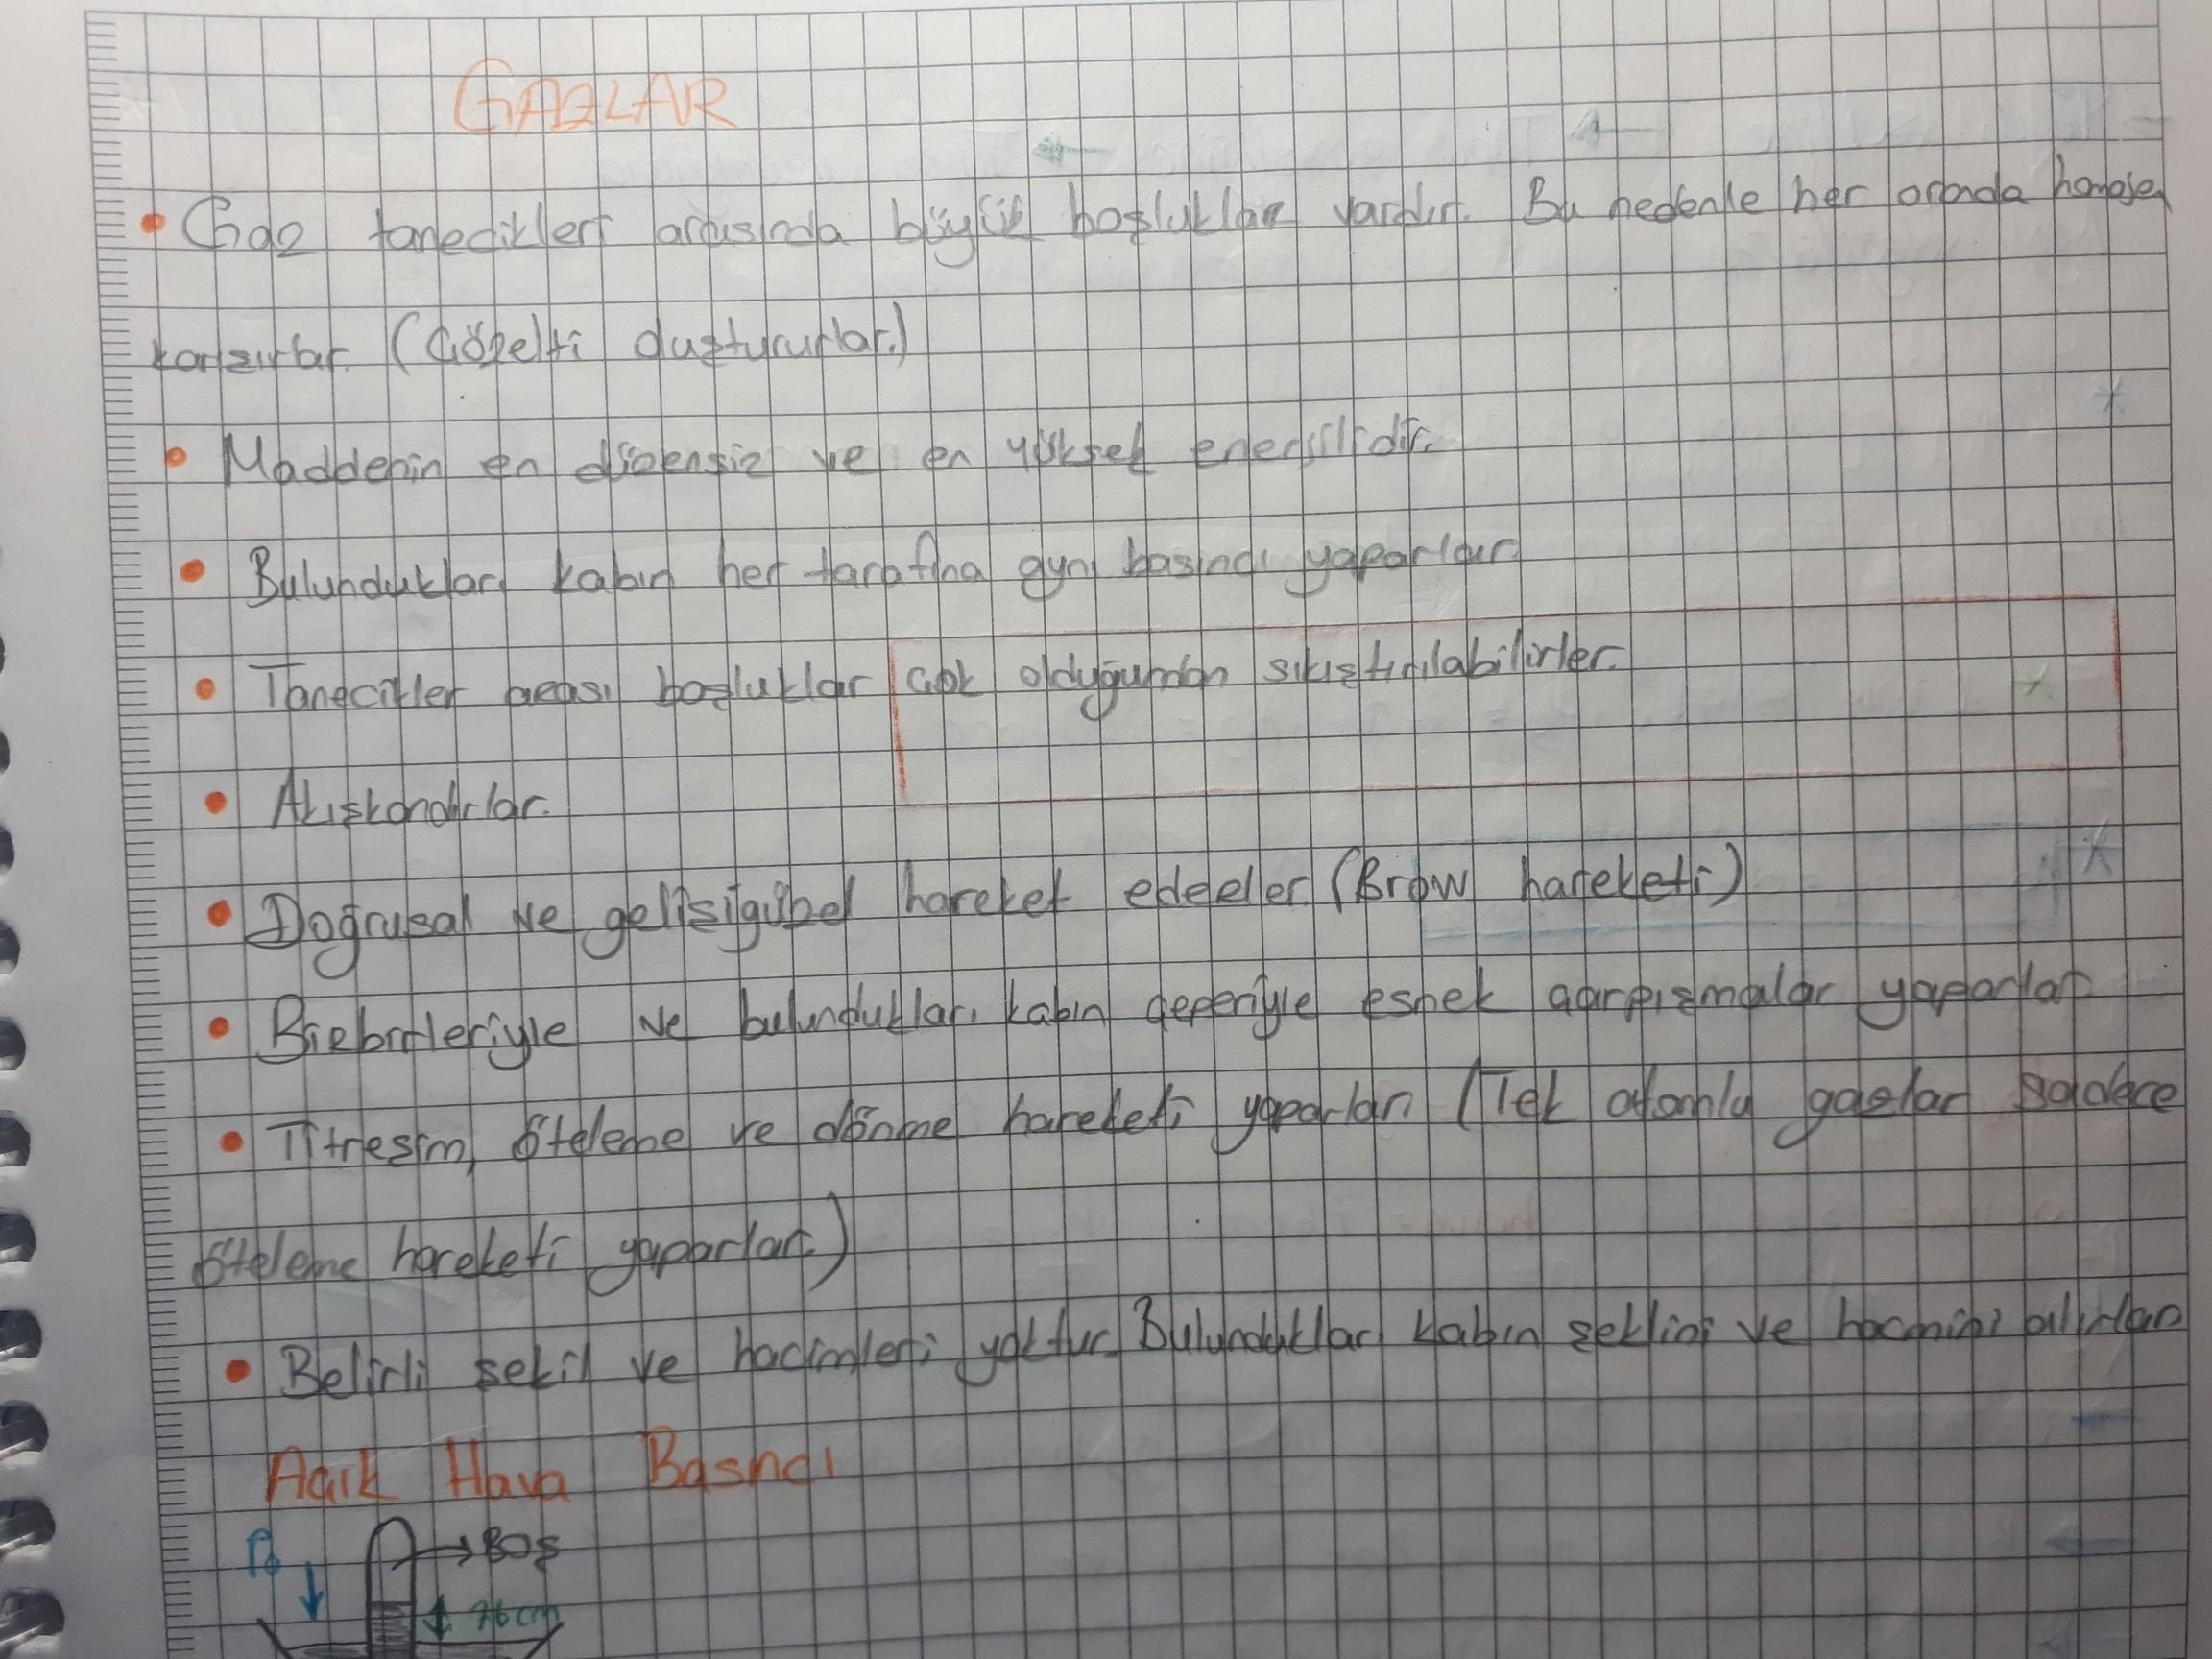 GAZLAR
• Gaz tanecikleri arasında büyük boşluklar vardır. Bu nedenle her oranda homojen
karışırlar. (Çözelti oluştururlar.)
• Maddenin en düzensiz ve en yüksek enerjilidir.
• Bulundukları kabın her tarafına aynı basıncı yaparlar.
• Tanecikler arası boşluklar çok olduğundan sıkıştırılabilirler.
• Akışkandırlar.
• Doğrusal ve gelişigüzel hareket ederler. (Brow hareketi)
• Birbirleriyle ve bulundukları kabın çeperiyle esnek çarpışmalar yaparlar.
• Titreşim, öteleme ve dönme hareketi yaparlar. (Tek atomlu gazlar sadece
öteleme hareketi yaparlar.)
• Belirli şekil ve hacimleri yoktur. Bulundukları kabın şeklini ve hacmini alırlar.
Açık Hava Basıncı
P₀ → Boş
76 cm